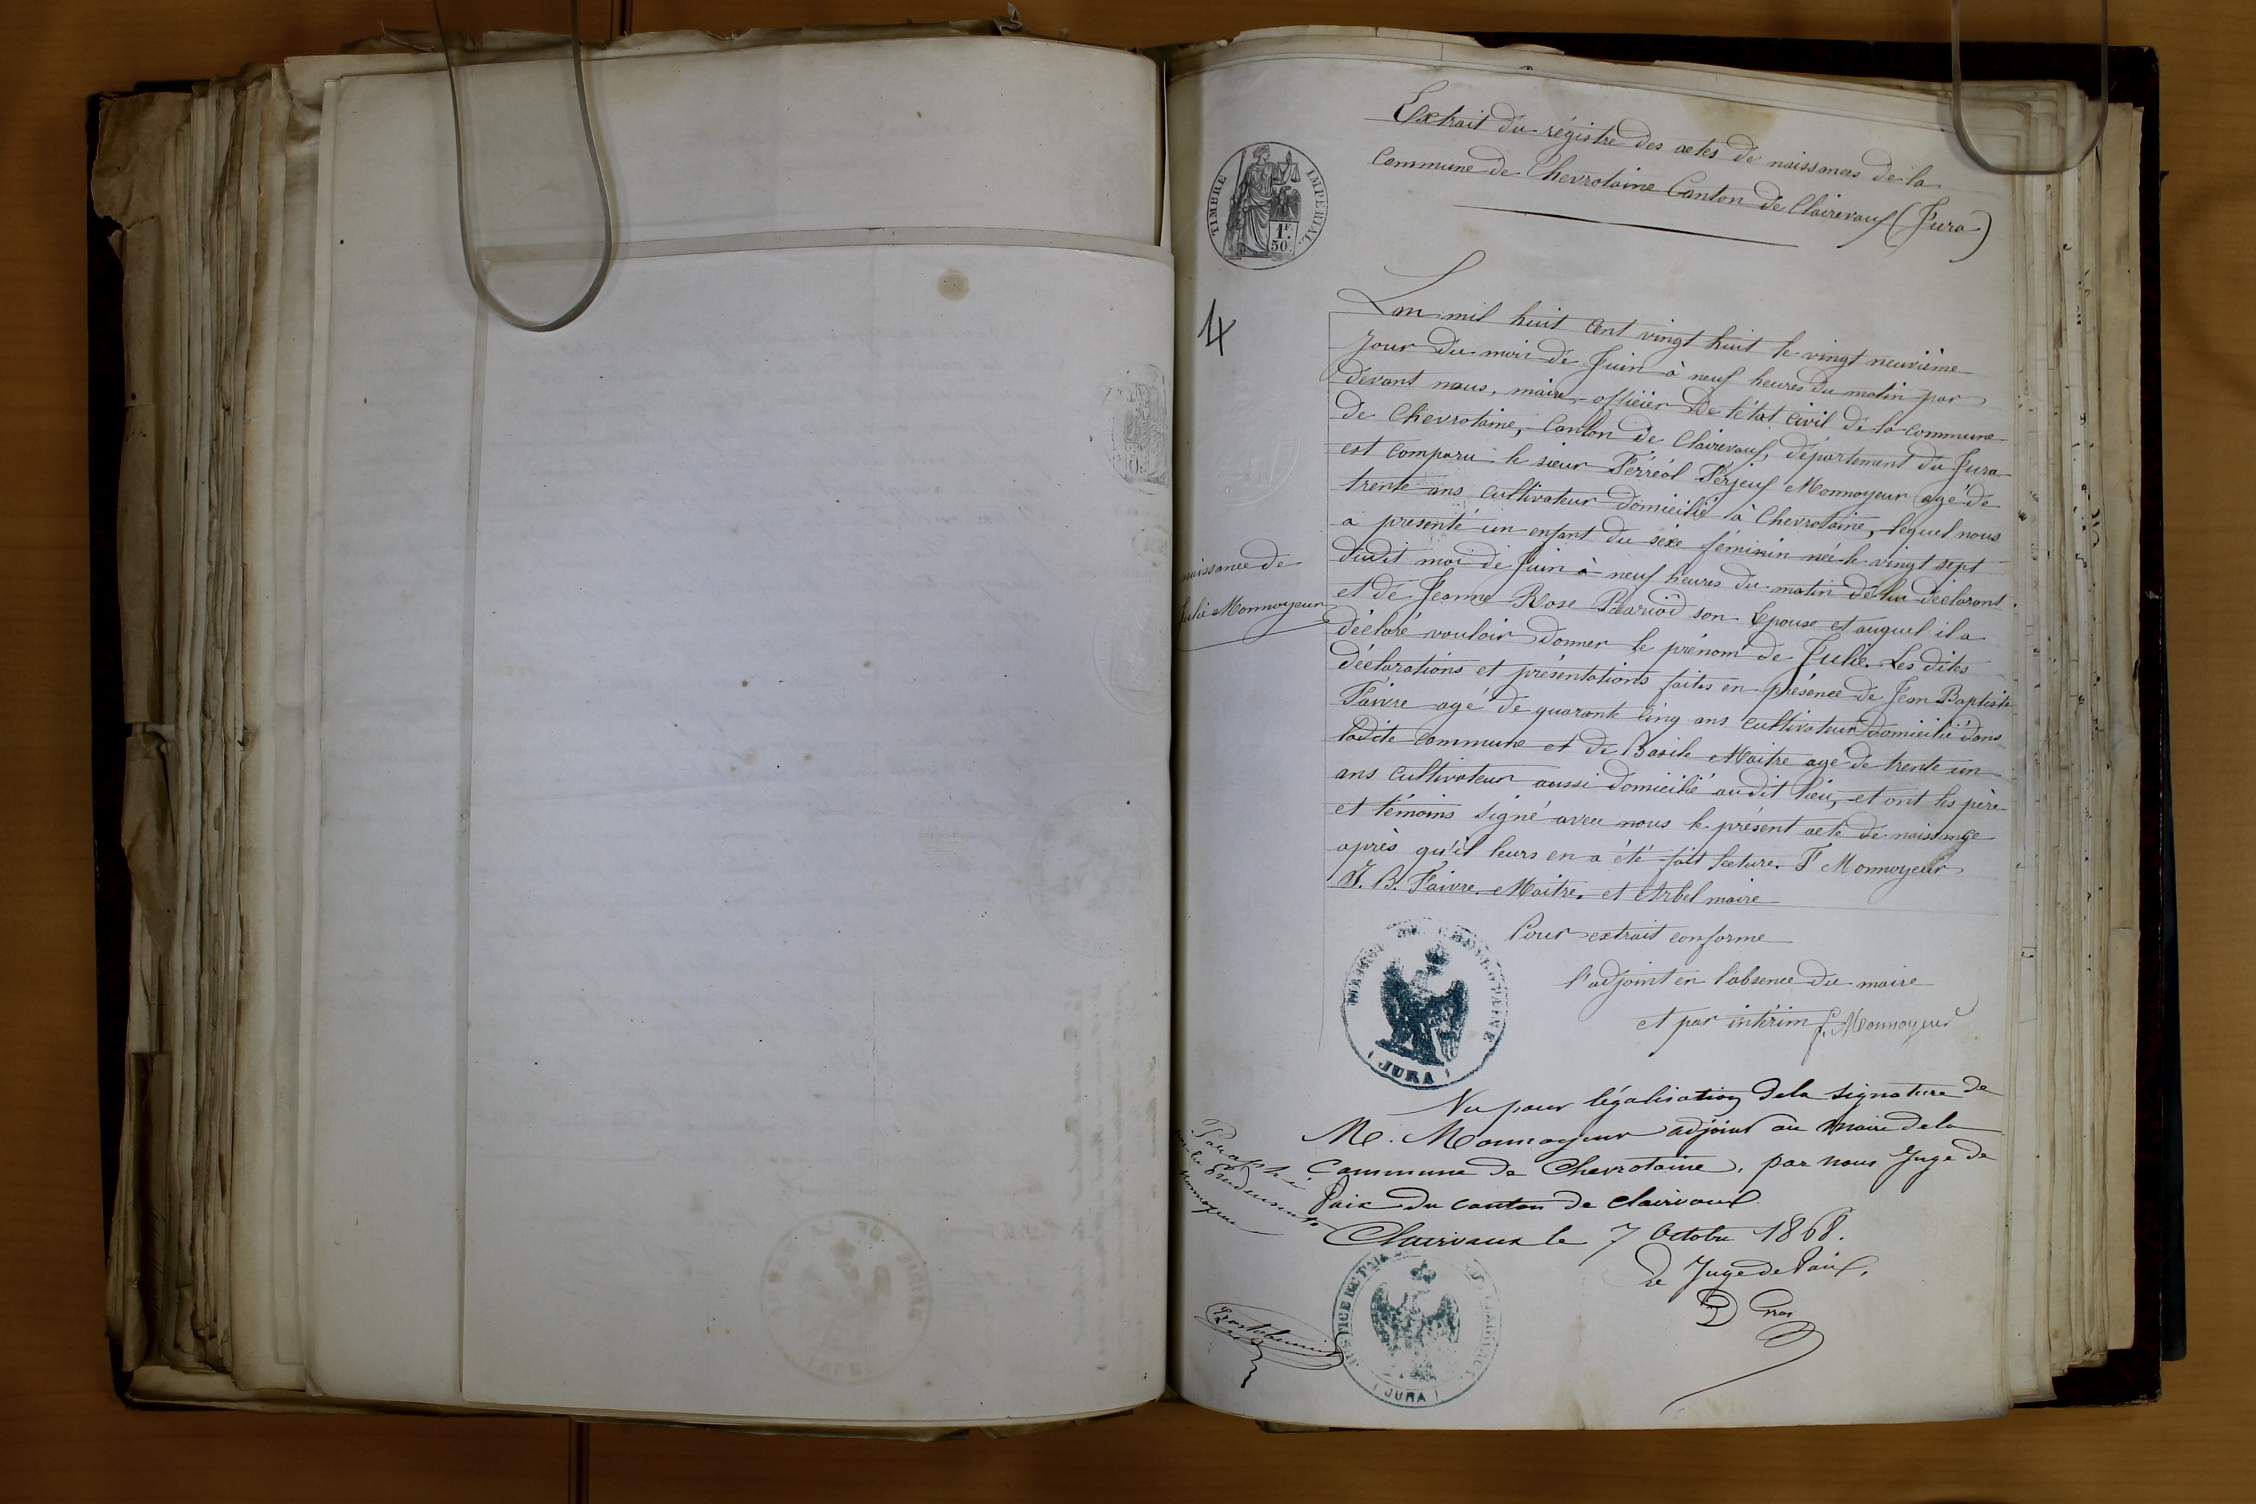 Extrait du régistre des actes de naissances de la
Commune de Chevrotaine Canton de Clairevaux (Jura)
TIMBRE IMPERIAL
1F.
50c.
4
L'an mil huit cent vingt huit le vingt neuvième
Jour du mois de Juin à neuf heures du matin par
devant nous, maire, officier de l'état civil de la commune
de Chevrotaine, Canton de Clairevaux, département du Jura
est comparu le sieur Férréol Férjeux Monnoyeur agé de
trente ans cultivateur domicilié à Chevrotaine, lequel nous
a présenté un enfant du séxe féminin née le vingt sept
dudit moi de Juin à neuf heures du matin de lui déclarant
et de Jeanne Rose son Epouse et auquel il a
déclaré vouloir donner le prénom de Julie. Les dites
déclarations et présentations faites en présence de Jean Baptiste
Faivre agé de quarante cinq ans cultivateur domicilié dans
ladite commune et de Basile Maitre agé de trente un
ans cultivateur aussi domicilié audit lieu, et ont les père
et témoins signé avec nous le présent acte de naissance
après qu'il leurs en a été fait lecture. F Monnoyeur
J. B. Faivre. Maitre. et Arbel maire
naissance de
Julie Monnoyeur
Pour extrait conforme
l'adjoint en l'absence du maire
et par intérim f. Monnoyeur
MAIRIE DE CHEVROTAINE
(JURA)
Vu pour légalisation de la signature de
M. Monnoyeur adjoint au maire de la
Commune de Chevrotaine, par nous Juge de
Paix du canton de Clairvaux.
Clairvaux le 7 Octobre 1868.
Le Juge de Paix,
Gros
Paraphé
Monnoyeur
JUSTICE DE PAIX
(JURA)